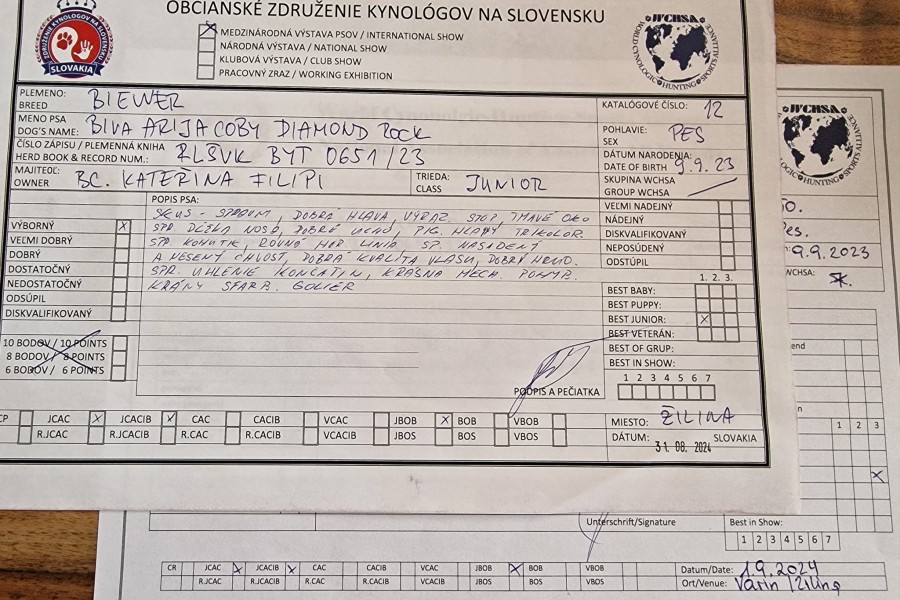 OBČIANSKE ZDRUŽENIE KYNOLÓGOV NA SLOVENSKU
ZDRUŽENIE KYNOLÓGOV NA SLOVENSKU
SLOVAKIA
MEDZINÁRODNÁ VÝSTAVA PSOV / INTERNATIONAL SHOW
NÁRODNÁ VÝSTAVA / NATIONAL SHOW
KLUBOVÁ VÝSTAVA / CLUB SHOW
PRACOVNÝ ZRAZ / WORKING EXHIBITION
WCHSA
WORLD CYNOLOGIC HUNTING SPORTS
PLEMENO:
BREED
BIEWER
KATALÓGOVÉ ČÍSLO: 12
MENO PSA
DOG'S NAME: BIVA ARIJACOBY DIAMOND ROCK
POHLAVIE:
SEX
PES
ČÍSLO ZÁPISU / PLEMENNÁ KNIHA
HERD BOOK & RECORD NUM.: RLSVK BYT 0651/23
DÁTUM NARODENIA:
DATE OF BIRTH 9.9.23
MAJITEĽ:
OWNER
BC. KATEŘINA FILIPI
TRIEDA:
CLASS
JUNIOR
SKUPINA WCHSA
GROUP WCHSA
POPIS PSA:
SKUS - SPRÁVNY, DOBRÁ HLAVA, VÝRAZ. STOP, TMAVÉ OKO
SPR. DĹŽKA NOSA, DOBRÉ UCHO, PIG. TRIKOLOR.
SPR. KOHÚTIK, ROVNÁ HOR. LÍNIA, SP. NASADENÝ
A NESENÝ CHVOST, DOBRÁ KVALITA VLASU, DOBRÝ
SPR. UHLENIE KONČATÍN, KRÁSNA MECH. POHYB.
SFARB. GOLIER
VÝBORNÝ X
VEĽMI DOBRÝ
DOBRÝ
DOSTATOČNÝ
NEDOSTATOČNÝ
ODSÚPIL
DISKVALIFIKOVANÝ
VEĽMI NADEJNÝ
NÁDEJNÝ
DISKVALIFIKOVANÝ
NEPOSÚDENÝ
ODSTÚPIL
1. 2. 3.
BEST BABY:
BEST PUPPY:
BEST JUNIOR: X
BEST VETERÁN:
BEST OF GRUP:
BEST IN SHOW:
1 2 3 4 5 6 7
10 BODOV / 10 POINTS
8 BODOV / 8 POINTS
6 BODOV / 6 POINTS
PODPIS A PEČIATKA
CP JCAC X JCACIB X CAC CACIB VCAC JBOB X BOB VBOB
R.JCAC R.JCACIB R.CAC R.CACIB VCACIB JBOS BOS VBOS
MIESTO: ŽILINA
DÁTUM: 31. 08. 2024 SLOVAKIA
WCHSA
HUNTING SPORTS
Pes.
9.9.2023
WCHSA:
end
1 2 3
X
Unterschrift/Signature
Best in Show:
1 2 3 4 5 6 7
CR JCAC X JCACIB X CAC CACIB VCAC JBOB X BOB VBOB
R.JCAC R.JCACIB R.CAC R.CACIB VCACIB JBOS BOS VBOS
Datum/Date: 1.9.2024
Ort/Venue: Varín Žilina